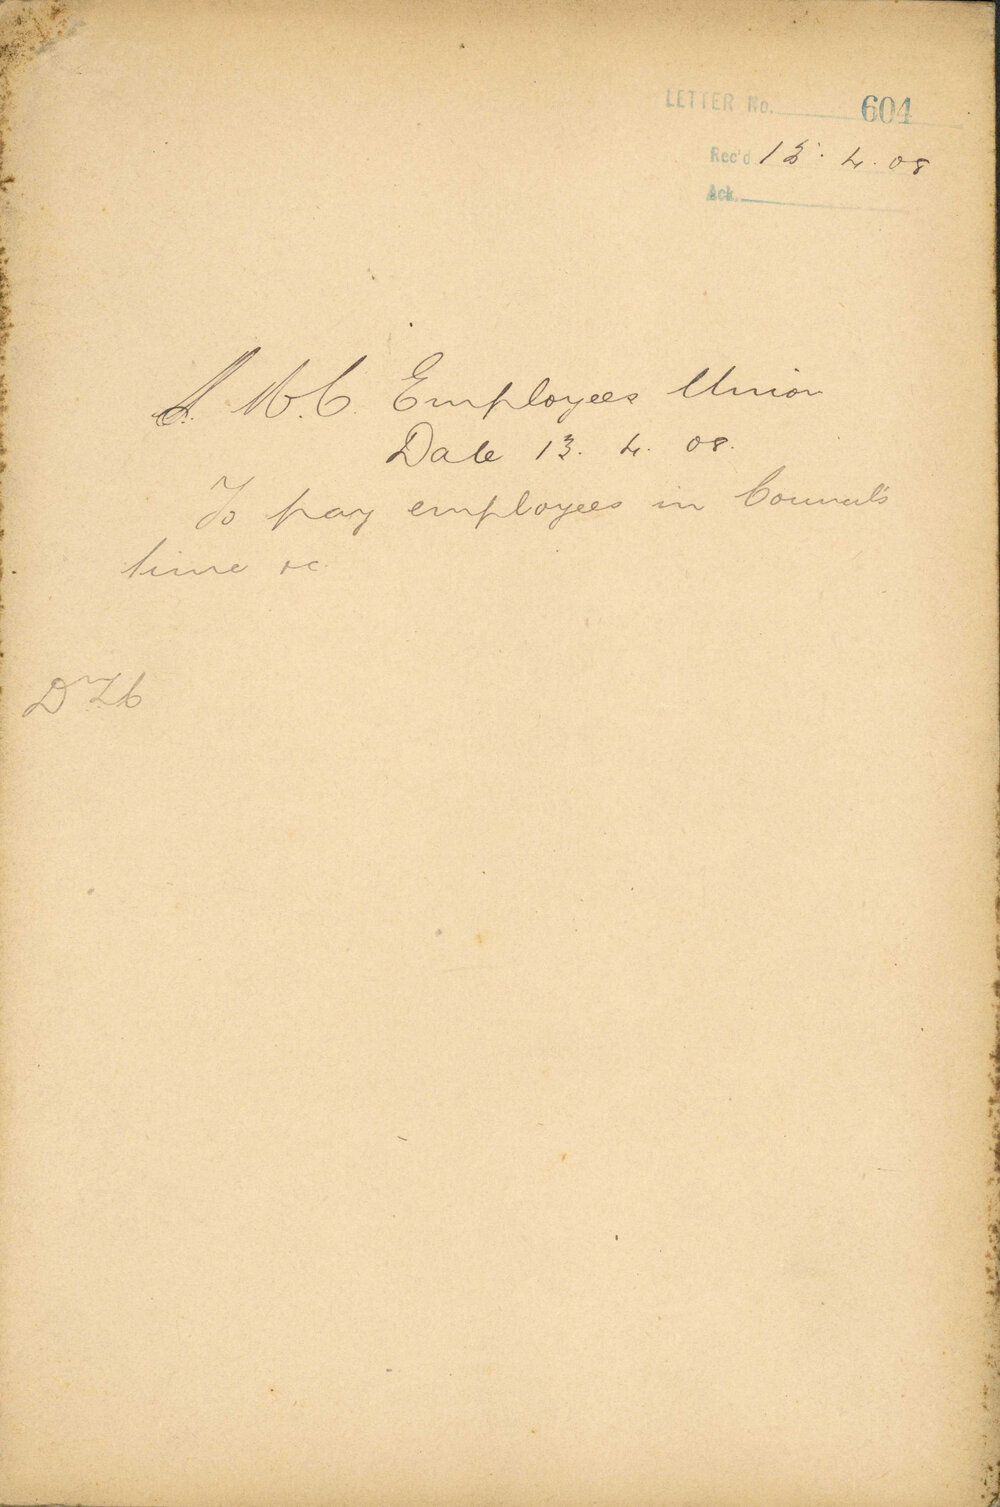 LETTER No. 604
Rec'd 13. 4. 08
Ack.
M. C. Employees Union
Date 13. 4. 08.
To pay employees in Council's
time &c.